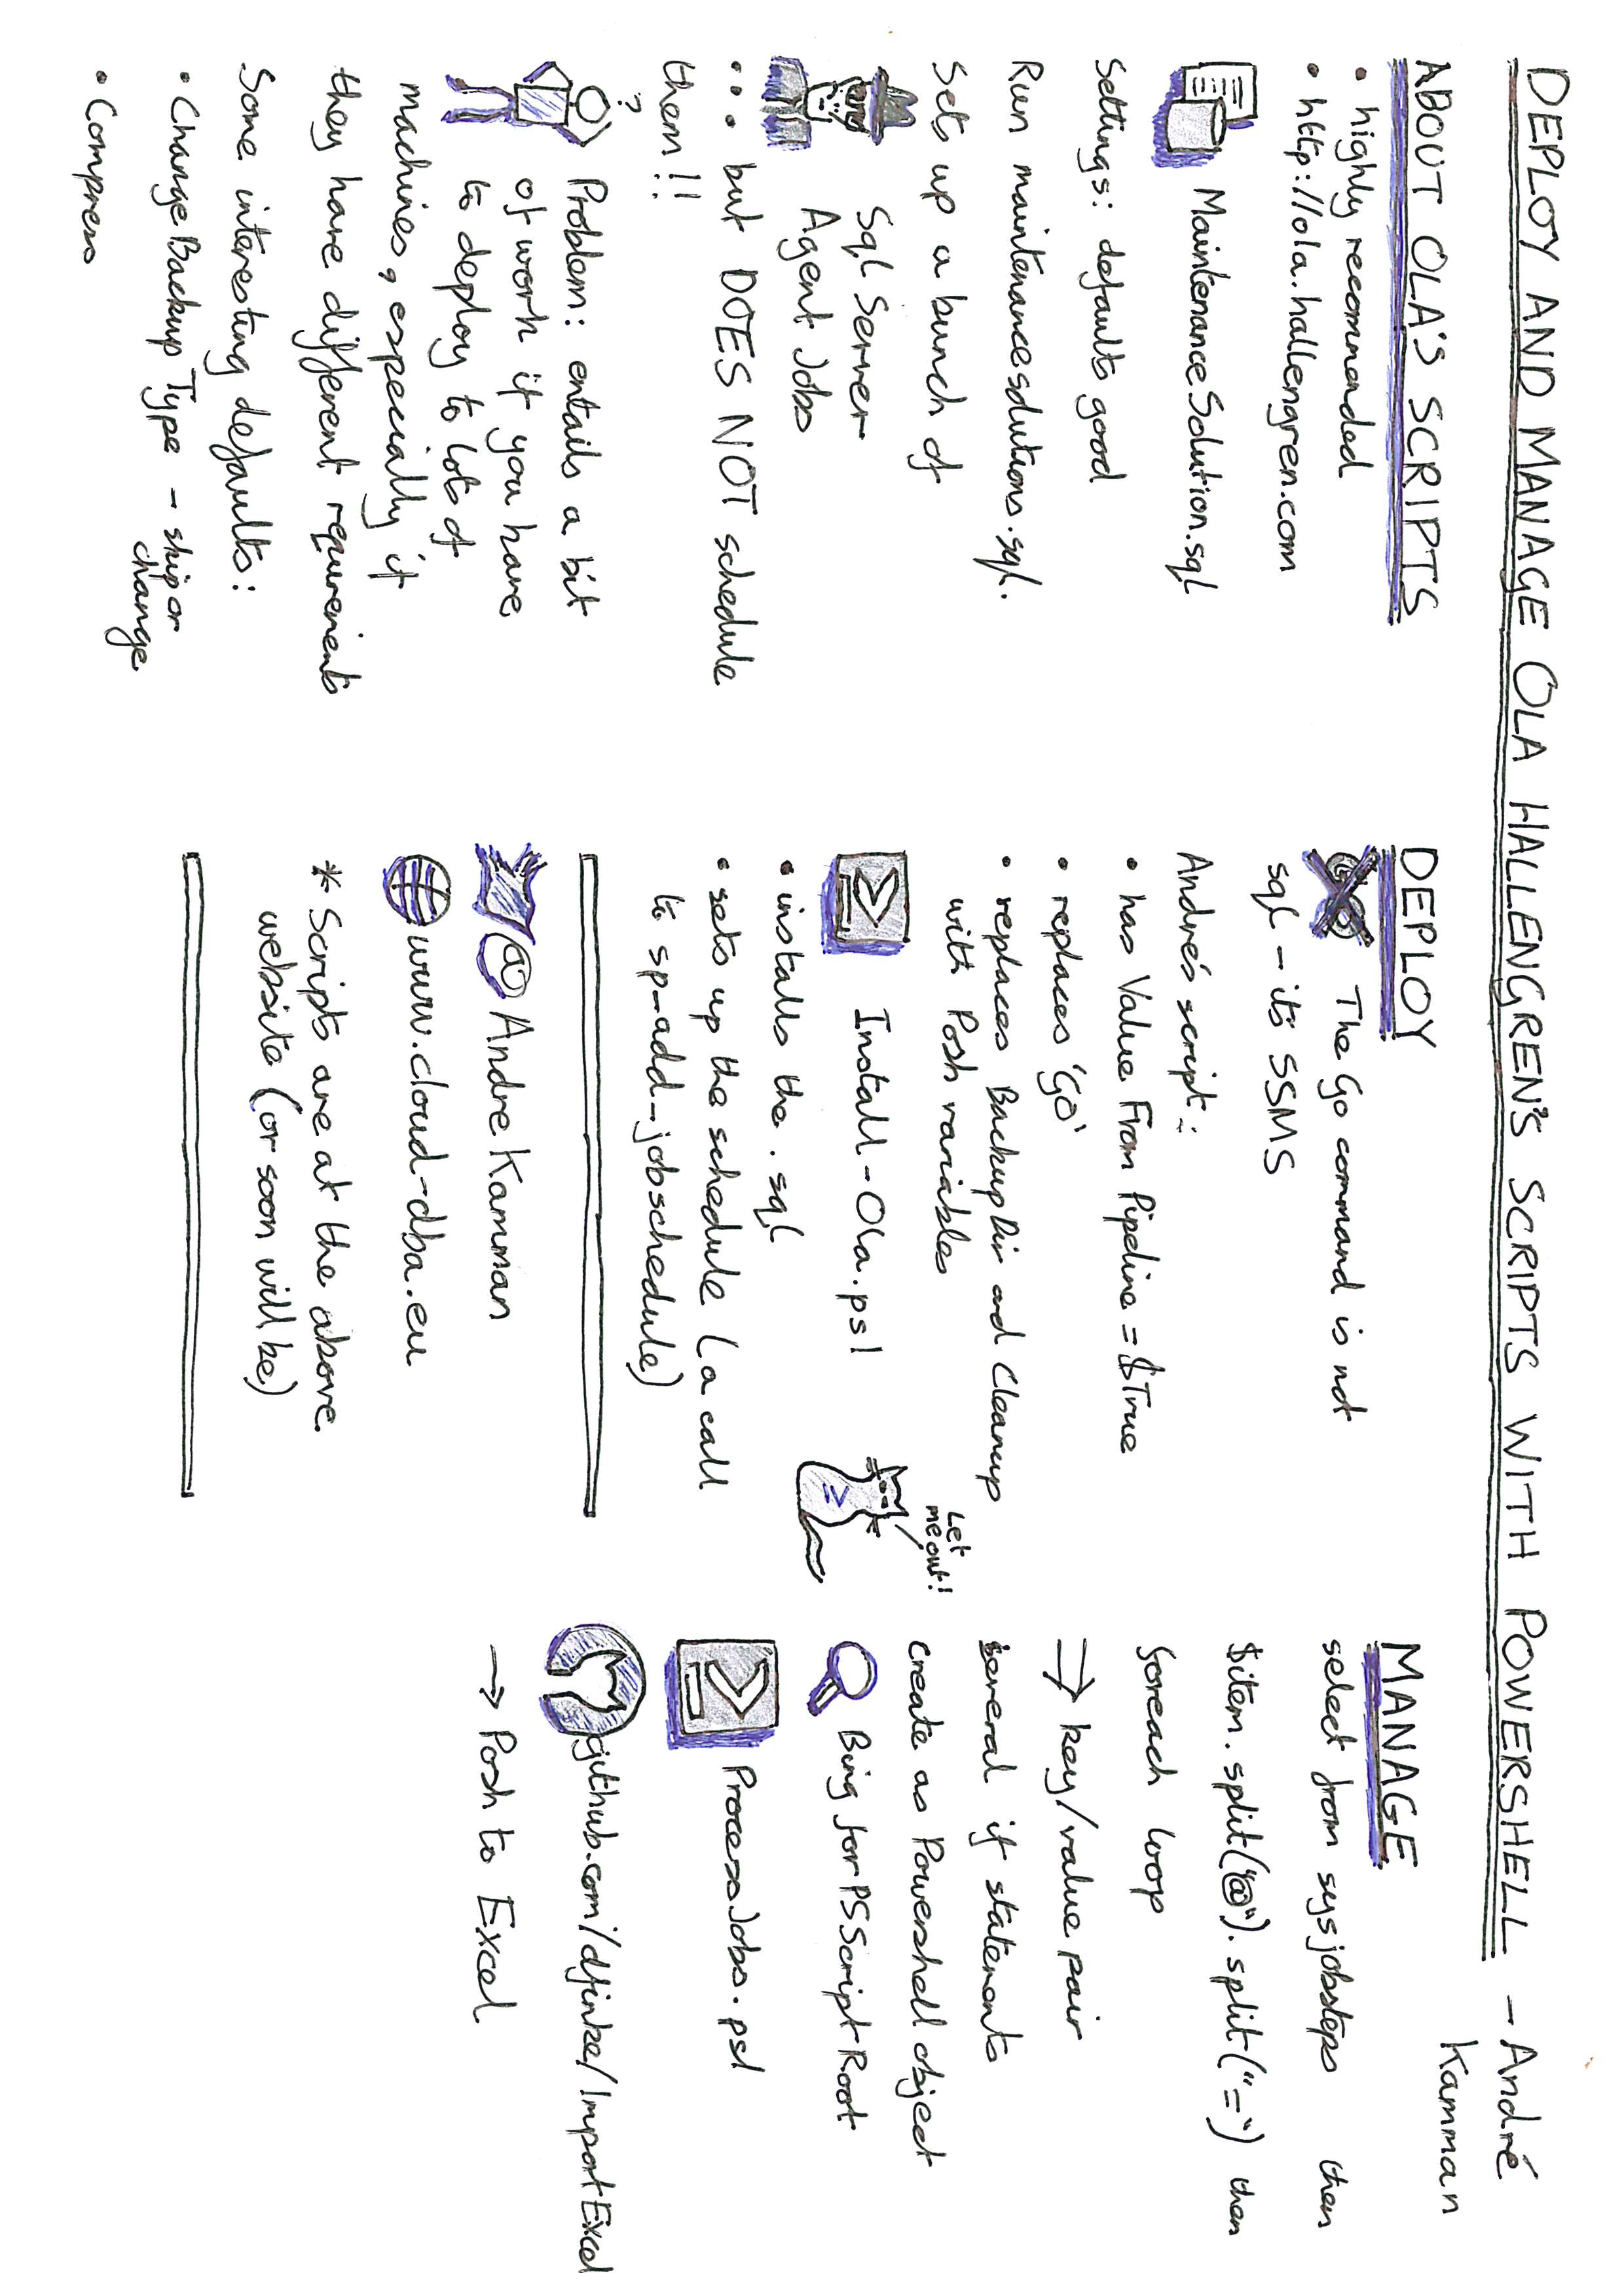 DEPLOY AND MANAGE OLA HALLENGREN'S SCRIPTS WITH POWERSHELL – André
Kamman
ABOUT OLA'S SCRIPTS
• highly recommended
• http://ola.hallengren.com
MaintenanceSolution.sql
Settings: defaults good
Run maintenancesolutions.sql.
Sets up a bunch of
Sql Server
Agent Jobs
... but DOES NOT schedule
them!!
?
Problem: entails a bit
of work if you have
to deploy to lots of
machines, especially if
they have different requirements
Some interesting defaults:
• Change Backup Type – skip or
change
• Compress
DEPLOY
GO The Go command is not
sql – it's SSMS
Andre's script:
• has Value From Pipeline = $True
• replaces 'GO'
• replaces BackupDir and Cleanup
with Posh variables
Let
me out!
Install-Ola.ps1
• installs the .sql
• sets up the schedule (a call
to sp_add_jobschedule)
@AndreKamman
www.cloud-dba.eu
* Scripts are at the above
website (or soon will be)
MANAGE
select from sysjobsteps then
$item.split("@").split("=") then
foreach loop
⇒ key/value pair
several if statements
create as Powershell object
Bing for PSScriptRoot
ProcessJobs.ps1
github.com/dfinke/ImportExcel
→ Posh to Excel